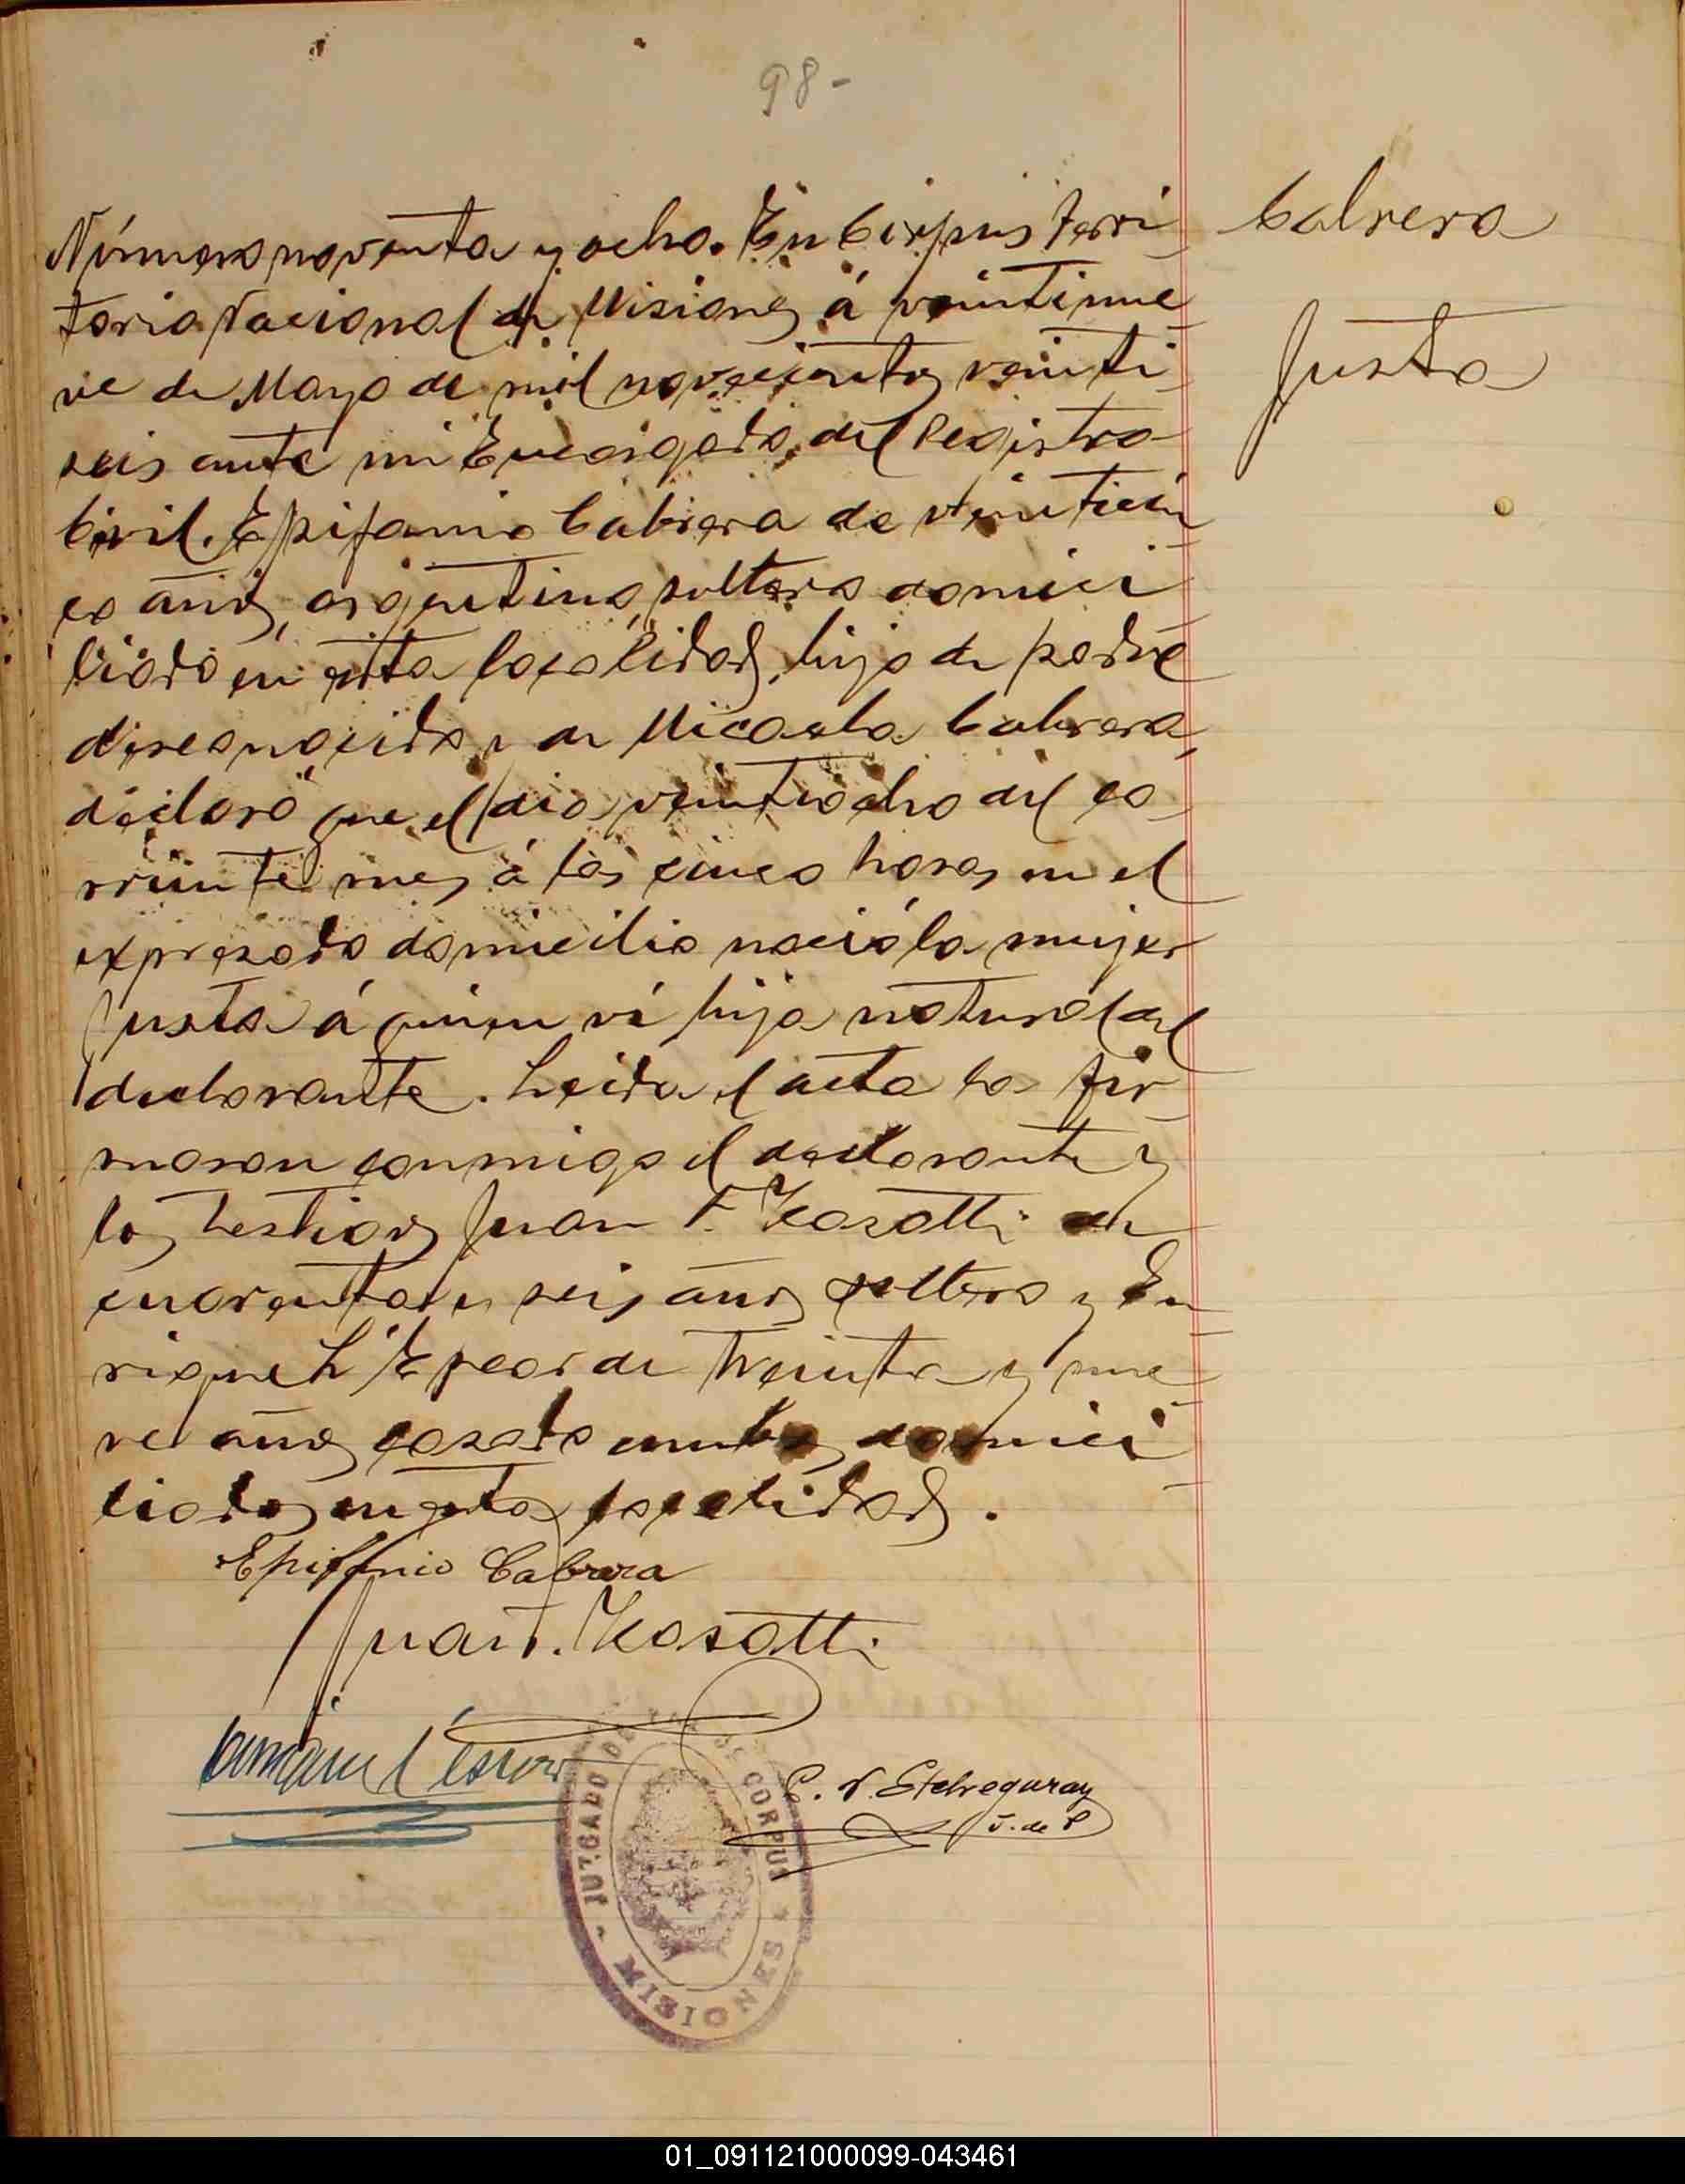 98-
Número noventa y ocho. En Corpus Terri
torio Nacional de Misiones á veintinue
ve de Mayo de mil novecientos veinti
seis ante mi Encargado del Registro
Civil. Epifanio Cabrera de veinticin
co años, argentino, soltero domici
liado en esta localidad, hijo de padre
desconocido y de Micaela Cabrera,
declaró que el dia veintiocho del co
rriente mes á las cinco horas en el
expresado domicilio nació la mujer
Justa á quien ví hija natural del
declarante. Leida el acta la fir
maron conmigo el declarante y
los testigos Juan F. Kasatti de
cuarenta y seis años soltero y En
rique L de treinta y nue
ve años casado ambos domici
liados en esta localidad.
Cabrera
Justa
Epifanio Cabrera
Juan F. Kasatti
P. N. Etcheguray
J. de P
JUZGADO DE PAZ DE CORPUS
MISIONES
01_091121000099-043461